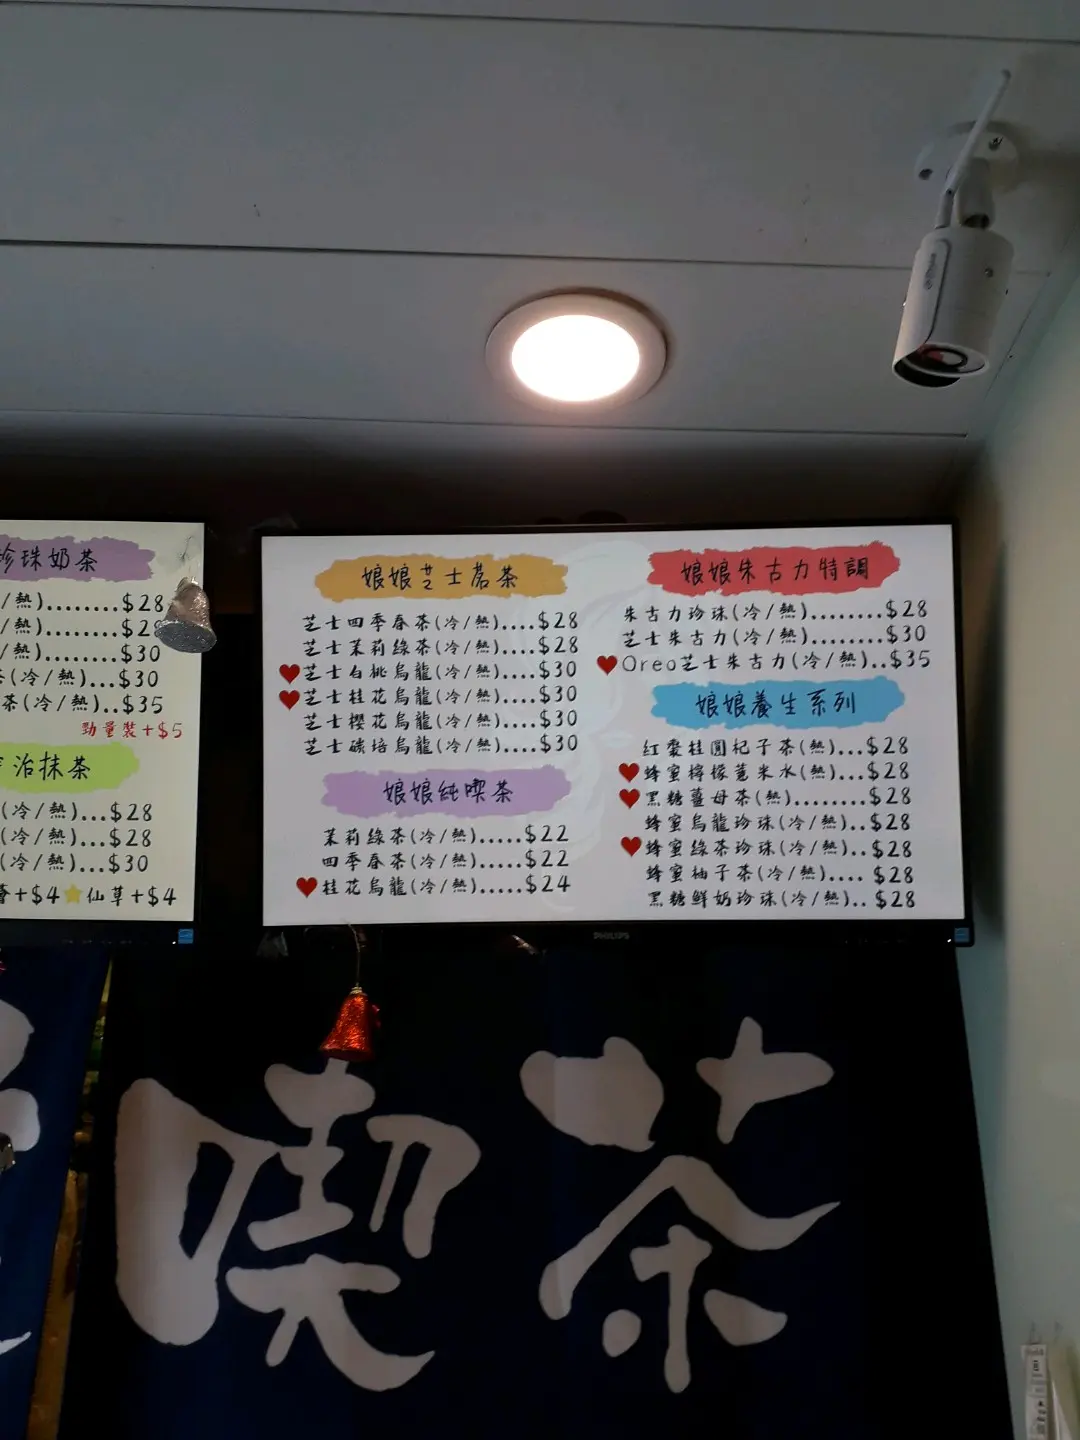 珍珠奶茶
/熱)........$28
/熱)........$28
/熱)........$30
(冷/熱)....$30
茶(冷/熱)..$35
勁量裝+$5
治抹茶
(冷/熱)...$28
(冷/熱)...$28
(冷/熱)...$30
+$4 仙草+$4
娘娘芝士茗茶
芝士四季春茶(冷/熱)....$28
芝士茉莉綠茶(冷/熱)....$28
芝士白桃烏龍(冷/熱)....$30
芝士桂花烏龍(冷/熱)....$30
芝士櫻花烏龍(冷/熱)....$30
芝士碳培烏龍(冷/熱)....$30
娘娘純喫茶
茉莉綠茶(冷/熱).....$22
四季春茶(冷/熱).....$22
桂花烏龍(冷/熱).....$24
娘娘朱古力特調
朱古力珍珠(冷/熱)........$28
芝士朱古力(冷/熱)........$30
Oreo芝士朱古力(冷/熱)..$35
娘娘養生系列
紅棗桂圓杞子茶(熱)...$28
蜂蜜檸檬薏米水(熱)...$28
黑糖薑母茶(熱)........$28
蜂蜜烏龍珍珠(冷/熱)..$28
蜂蜜綠茶珍珠(冷/熱)..$28
蜂蜜柚子茶(冷/熱).... $28
黑糖鮮奶珍珠(冷/熱).. $28
PHILIPS
喫茶